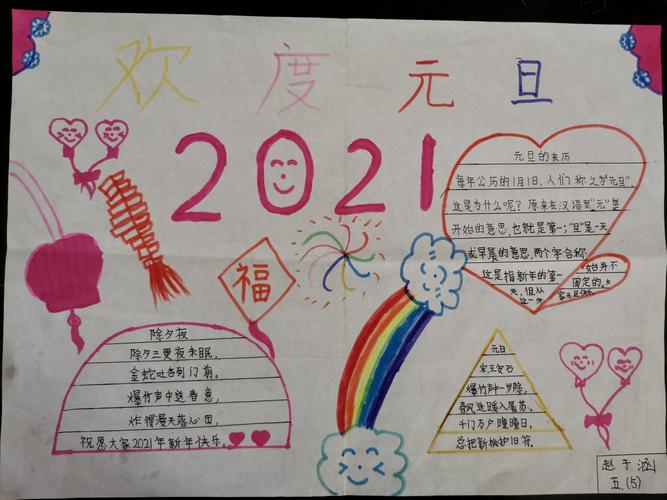 欢度元旦
2021
元旦的来历
每年公历的1月1日,人们称之为"元旦",
这是为什么呢?原来在汉语里"元"是
开始的意思,也就是第一;"旦"是一天
或早晨的意思,两个字合称
这是指新年的第一
天,但从
这一天
始并不
固定的,大
福
除夕夜
除夕三更夜未眠,
金蛇吐舌到门前。
爆竹声中送春意,
炸得漫天落心田。
祝愿大家2021年新年快乐。
元日
宋王安石
爆竹声中一岁除,
春风送暖入屠苏。
千门万户曈曈日,
总把新桃换旧符。
赵子涵
五.(5)